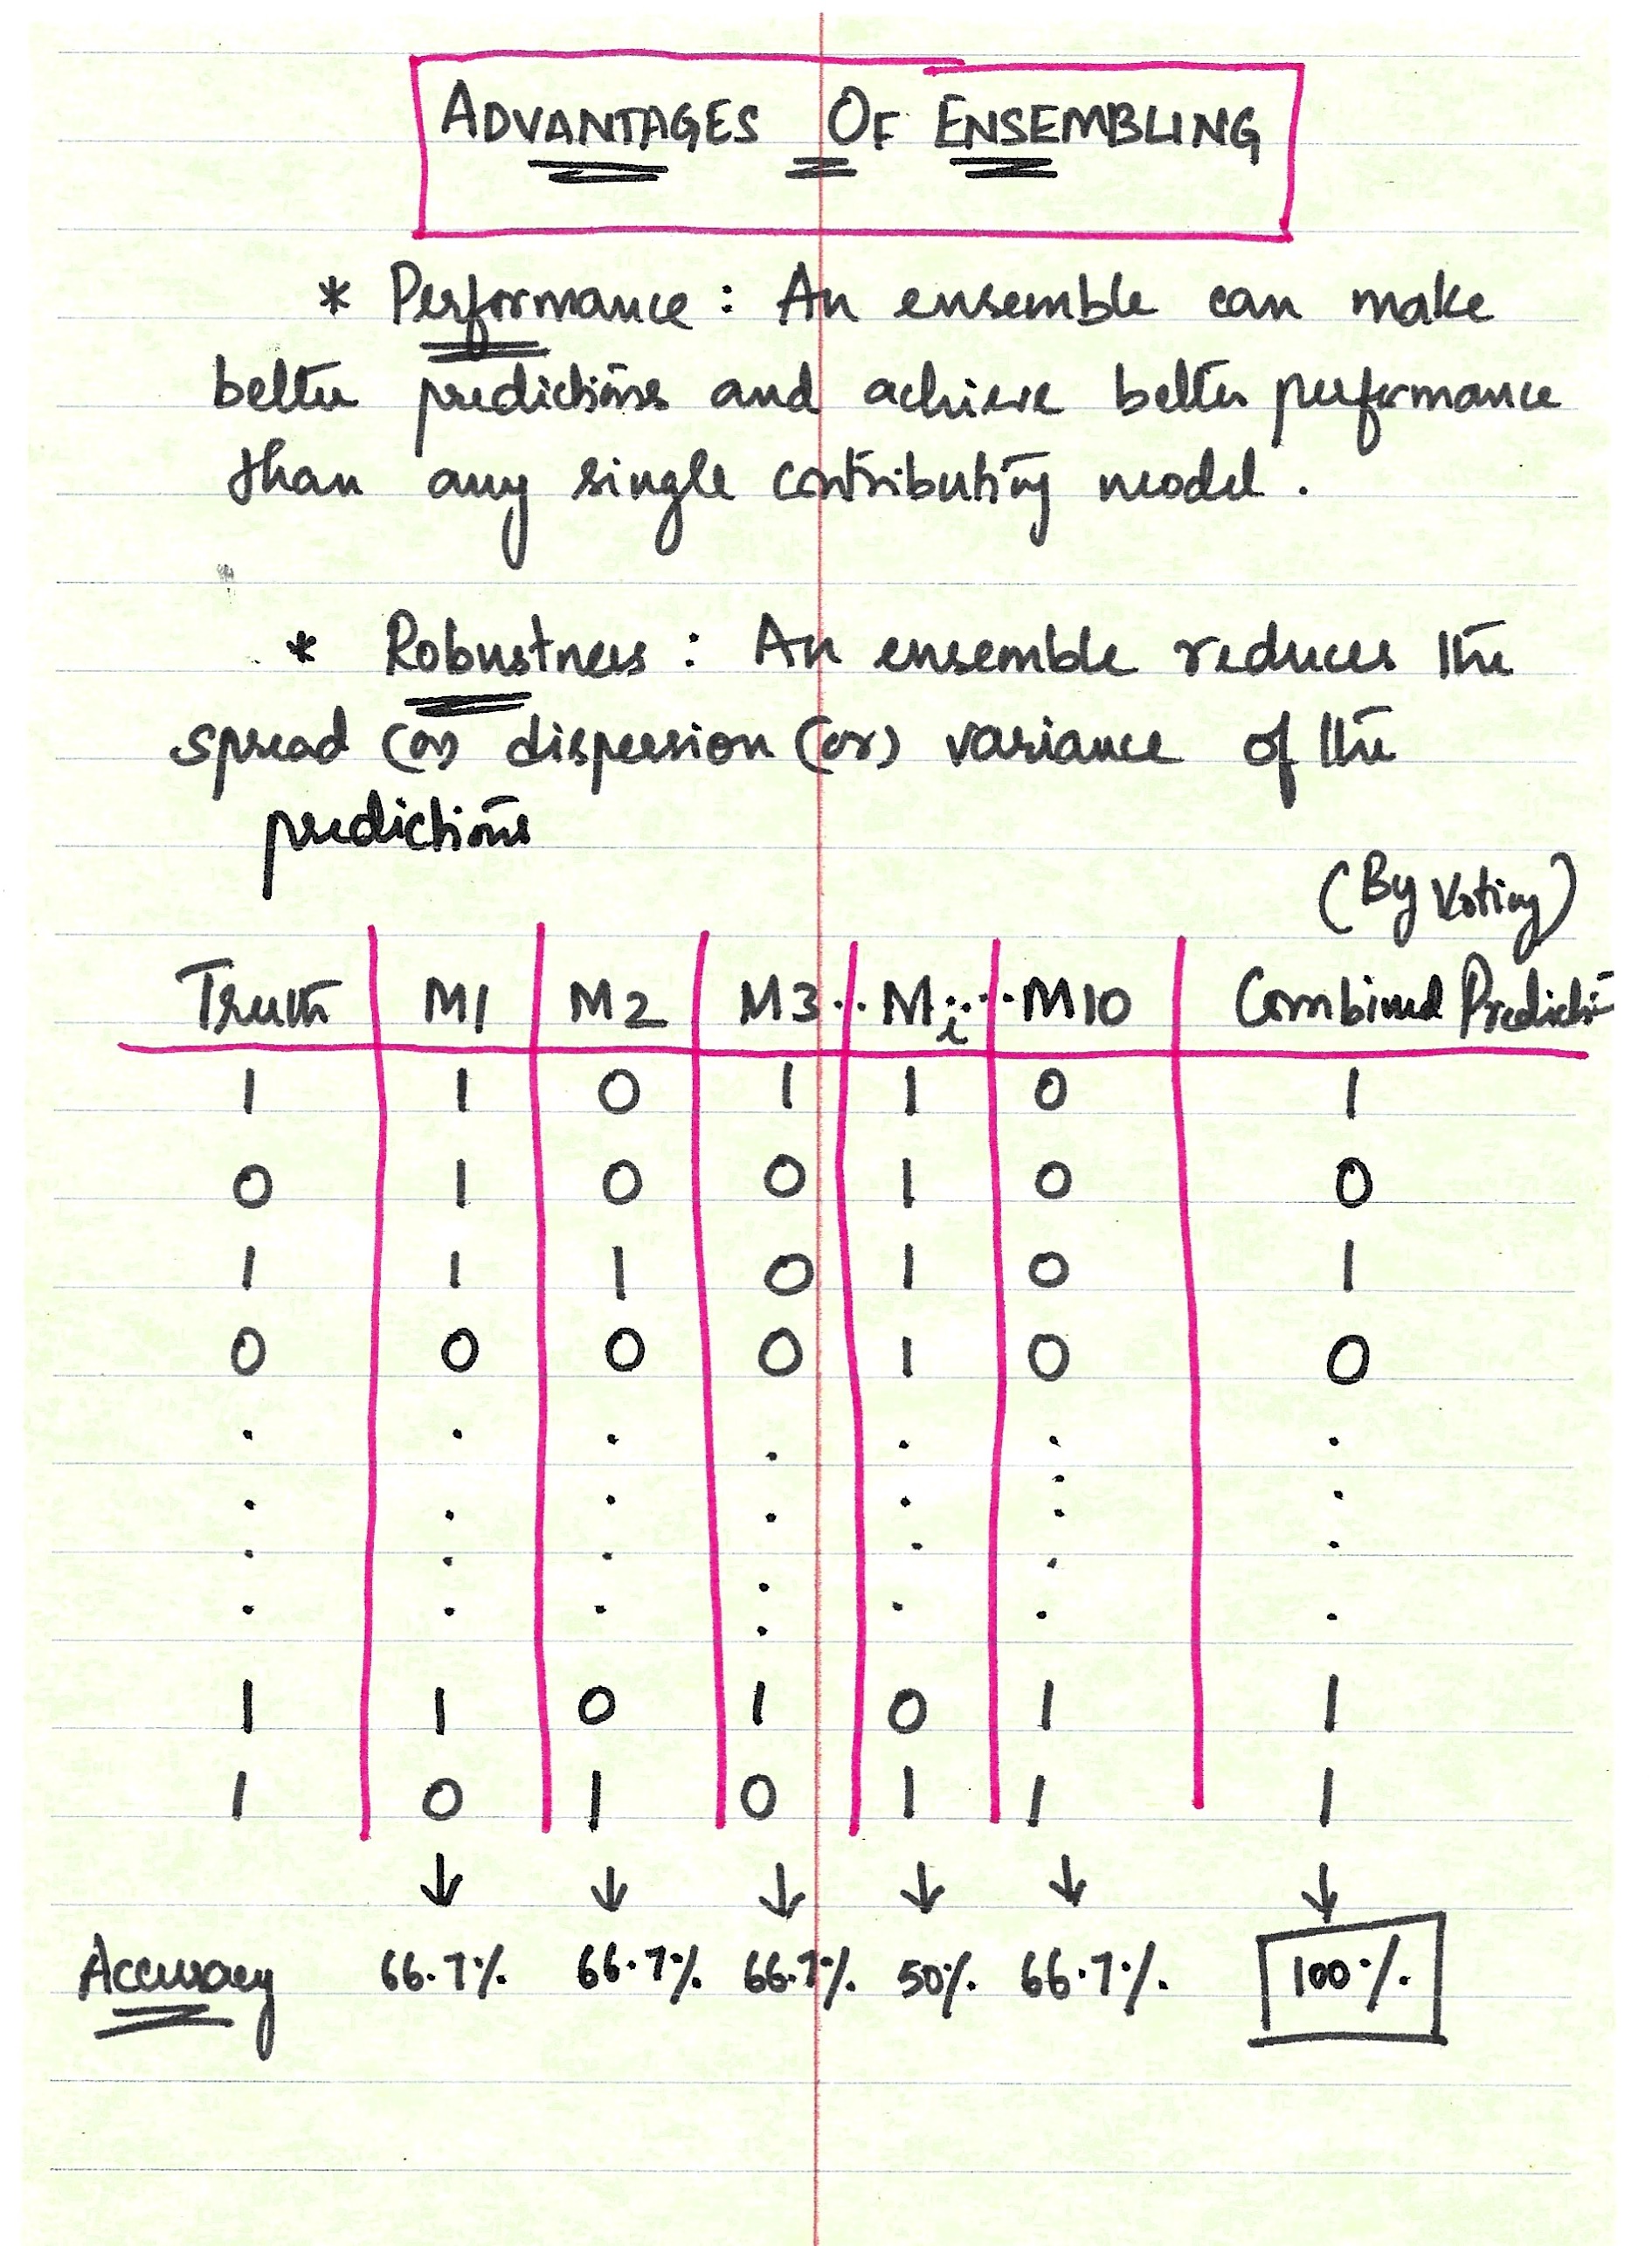 ADVANTAGES OF ENSEMBLING
* Performance : An ensemble can make
better predictions and achieve better performance
than any single contributing model .
* Robustness : An ensemble reduces the
spread (or) dispersion (or) variance of the
predictions
(By Voting)
Truth M1 M2 M3 .. Mi ... M10 Combined Predicti
1 1 0 1 1 0 1
0 1 0 0 1 0 0
1 1 1 0 1 0 1
0 0 0 0 1 0 0
. . . . . . .
. . . . . . .
. . . . . . .
. . . . . . .
1 1 0 1 0 1 1
1 0 1 0 1 1 1
↓ ↓ ↓ ↓ ↓ ↓
Accuracy 66.7% 66.7% 66.7% 50% 66.7%. 100%.